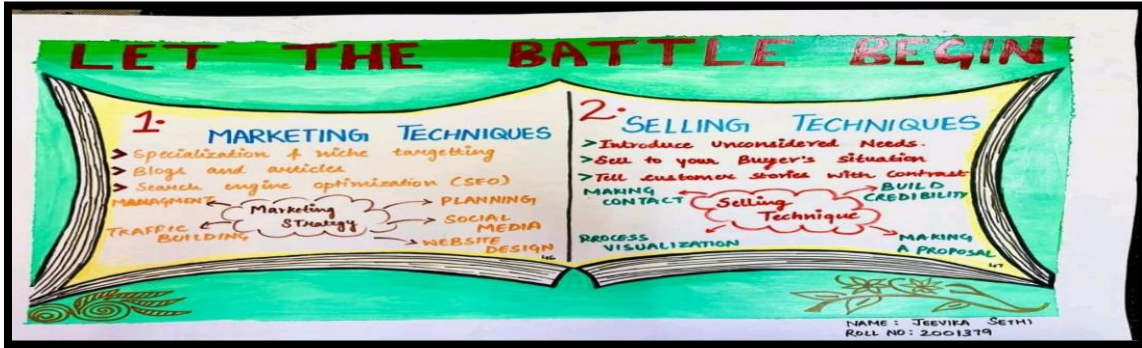 LET THE BATTLE BEGIN
1.
MARKETING TECHNIQUES
> Specialization & niche targetting
> Blogs and articles
> Search engine optimization (SEO)
MANAGMENT
Marketing
Strategy
PLANNING
TRAFFIC
BUILDING
SOCIAL
MEDIA
WEBSITE
DESIGN
46
2.
SELLING TECHNIQUES
> Introduce Unconsidered Needs.
> Sell to your Buyer's situation
> Tell customer stories with contrast
MAKING
CONTACT
Selling
Technique
BUILD
CREDIBILITY
PROCESS
VISUALIZATION
MAKING
A PROPOSAL
47
NAME: JEEVIKA SETHI
ROLL NO: 2001379